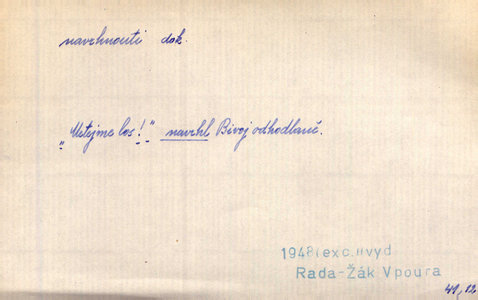 navrhnouti dok.
„Metejme los!" navrhl Bivoj odhodlaně.
1948(exc.IIvyd.
Rada-Žák Vpoura
41, 12.